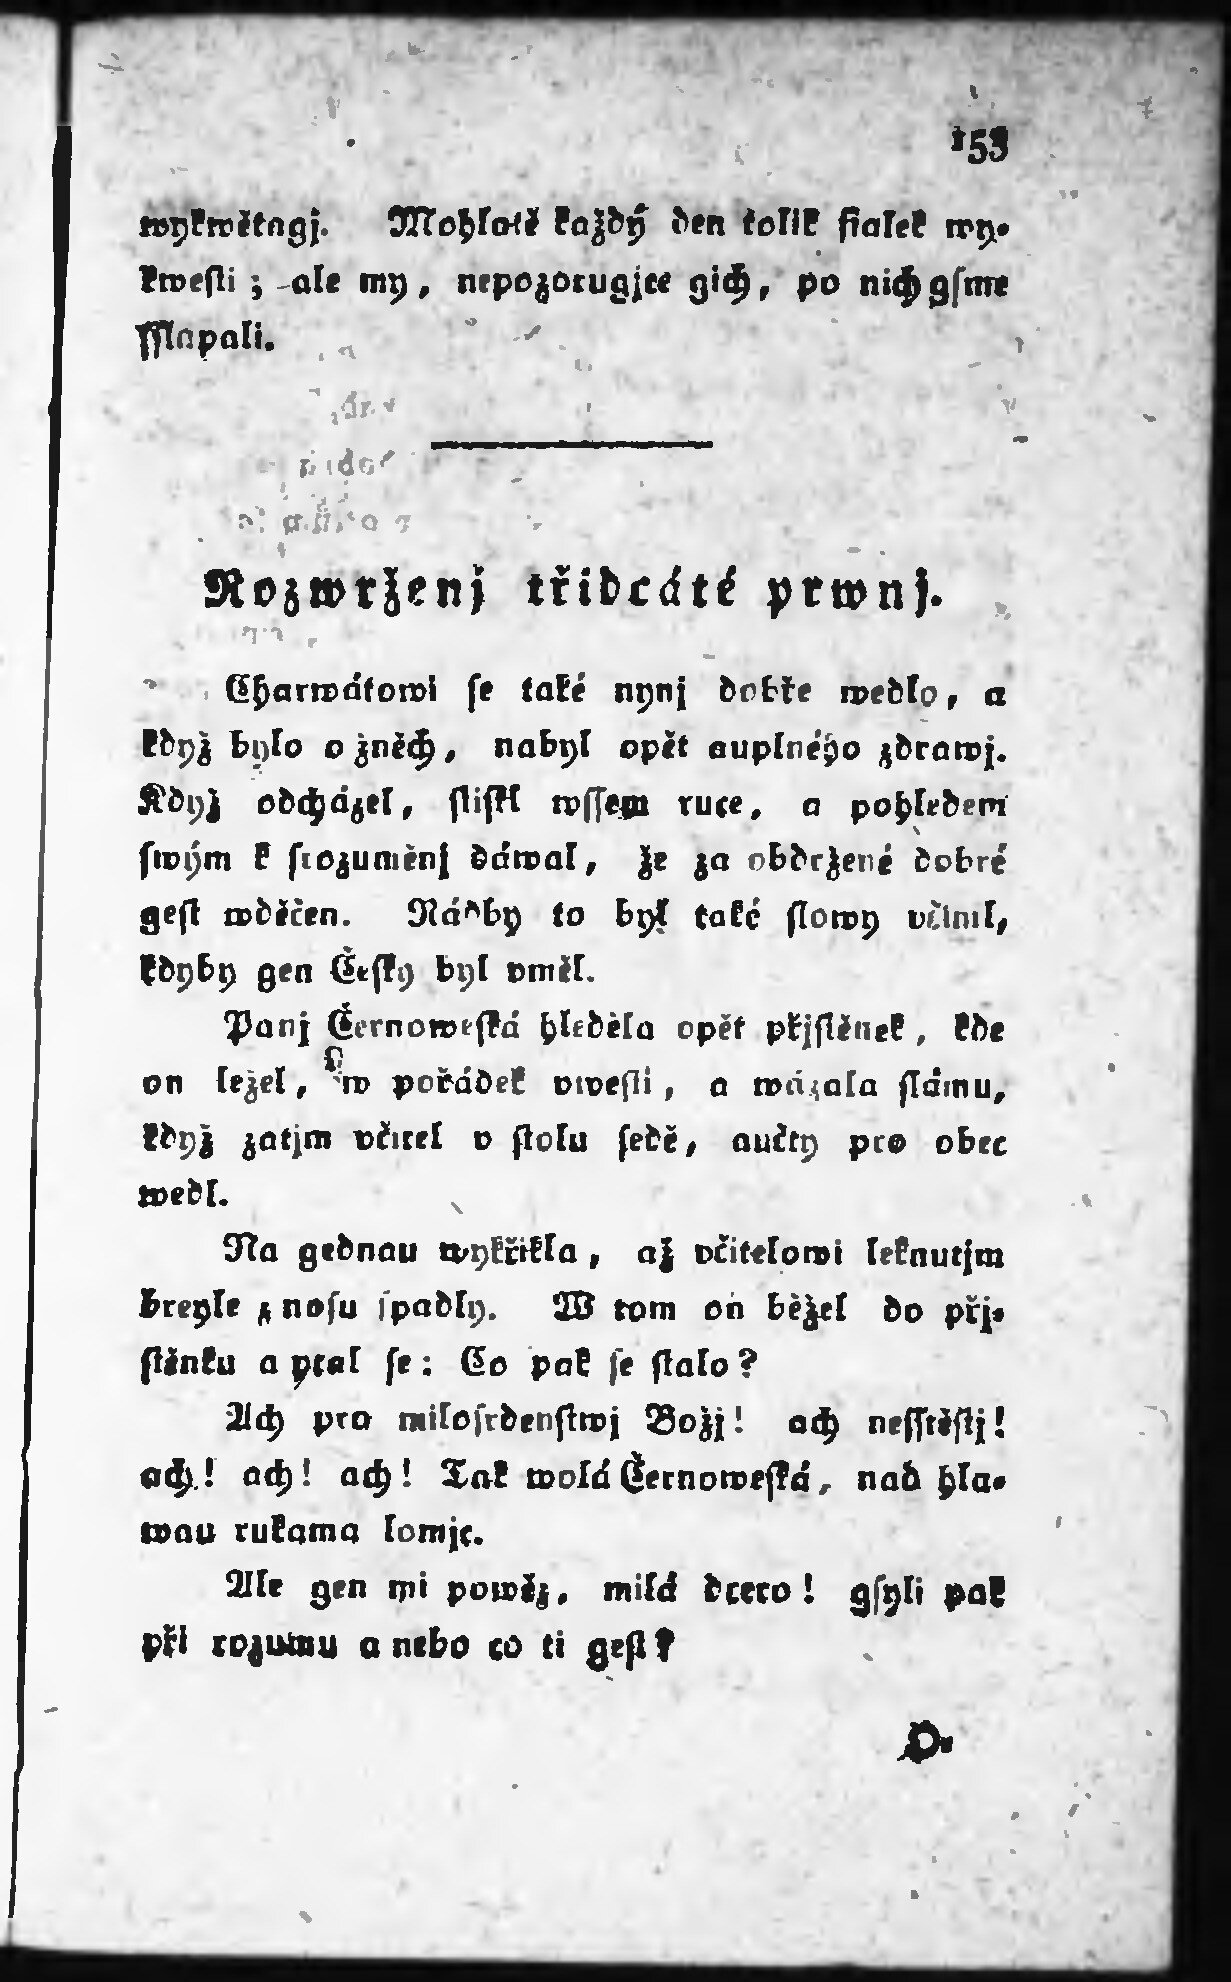 153
wykwětagj. Mohlatě každý den tolik fialek wy-
kwesti; ale my, nepozorugjce gich, po nich gsme
sslapali.
Rozwrženj třidcáté prwnj.
Charwátowi se také nynj dobře wedlo, a
když bylo o žněch, nabyl opět auplného zdrawj.
Když odcházel, stiskl wssem ruce, a pohledem
swým k srozuměnj dáwal, že za obdržené dobré
gest wděčen. Rádby to byl také slowy včinil,
kdyby gen Česky byl vměl.
Panj Černoweská hleděla opět přjstěnek, kde
on ležel, w pořádek vwesti, a wázala slámu,
když zatjm včitel v stolu sedě, aučty pro obec
wedl.
Na gednau wykřikla, až včitelowi leknutjm
breyle z nosu spadly. W tom on běžel do při-
stěnku a ptal se: Co pak se stalo?
Ach pro milosrdenstwj Božj! ach nesstěstj!
ach! ach! ach! Tak wolá Černoweská, nad hla-
wau rukama lomjc.
Ale gen mi powěz, milá dcero! gsyli pak
při rozumu a nebo co ti gest?
O-